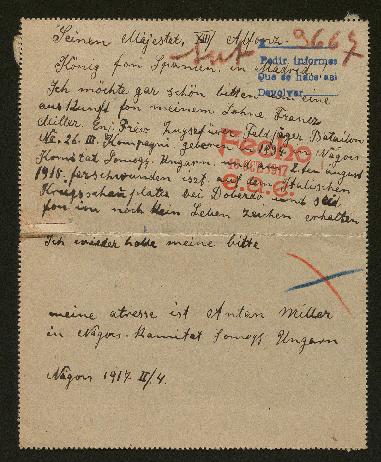 Seinen Majestet, XIII Alfonz.
9667
König fon Spanien, in Madrid
Pedir informes
Que se hace así
Devolver
Ich möchte gar schön bitten um eine
auskunft fon meinem Sohne Franz
Miller. Ein Zugsführer Feldjäger Bataillon
No. 26. III. Kompagni geboren 1894 Nágocs
Komitat Somogy. Ungarn, 2ten august
1916. ferschwunden ist, auf den Italischen
Kriegsschau platze bei Doberdo und seid
fon im noch kein Leben zeichen erhalten
Fecho
1917
Ich wieder holle meine bitte
meine atresse ist Antan Miller
in Nágocs. Kamitat Somogy Ungarn
Nágocs 1917 II/4.